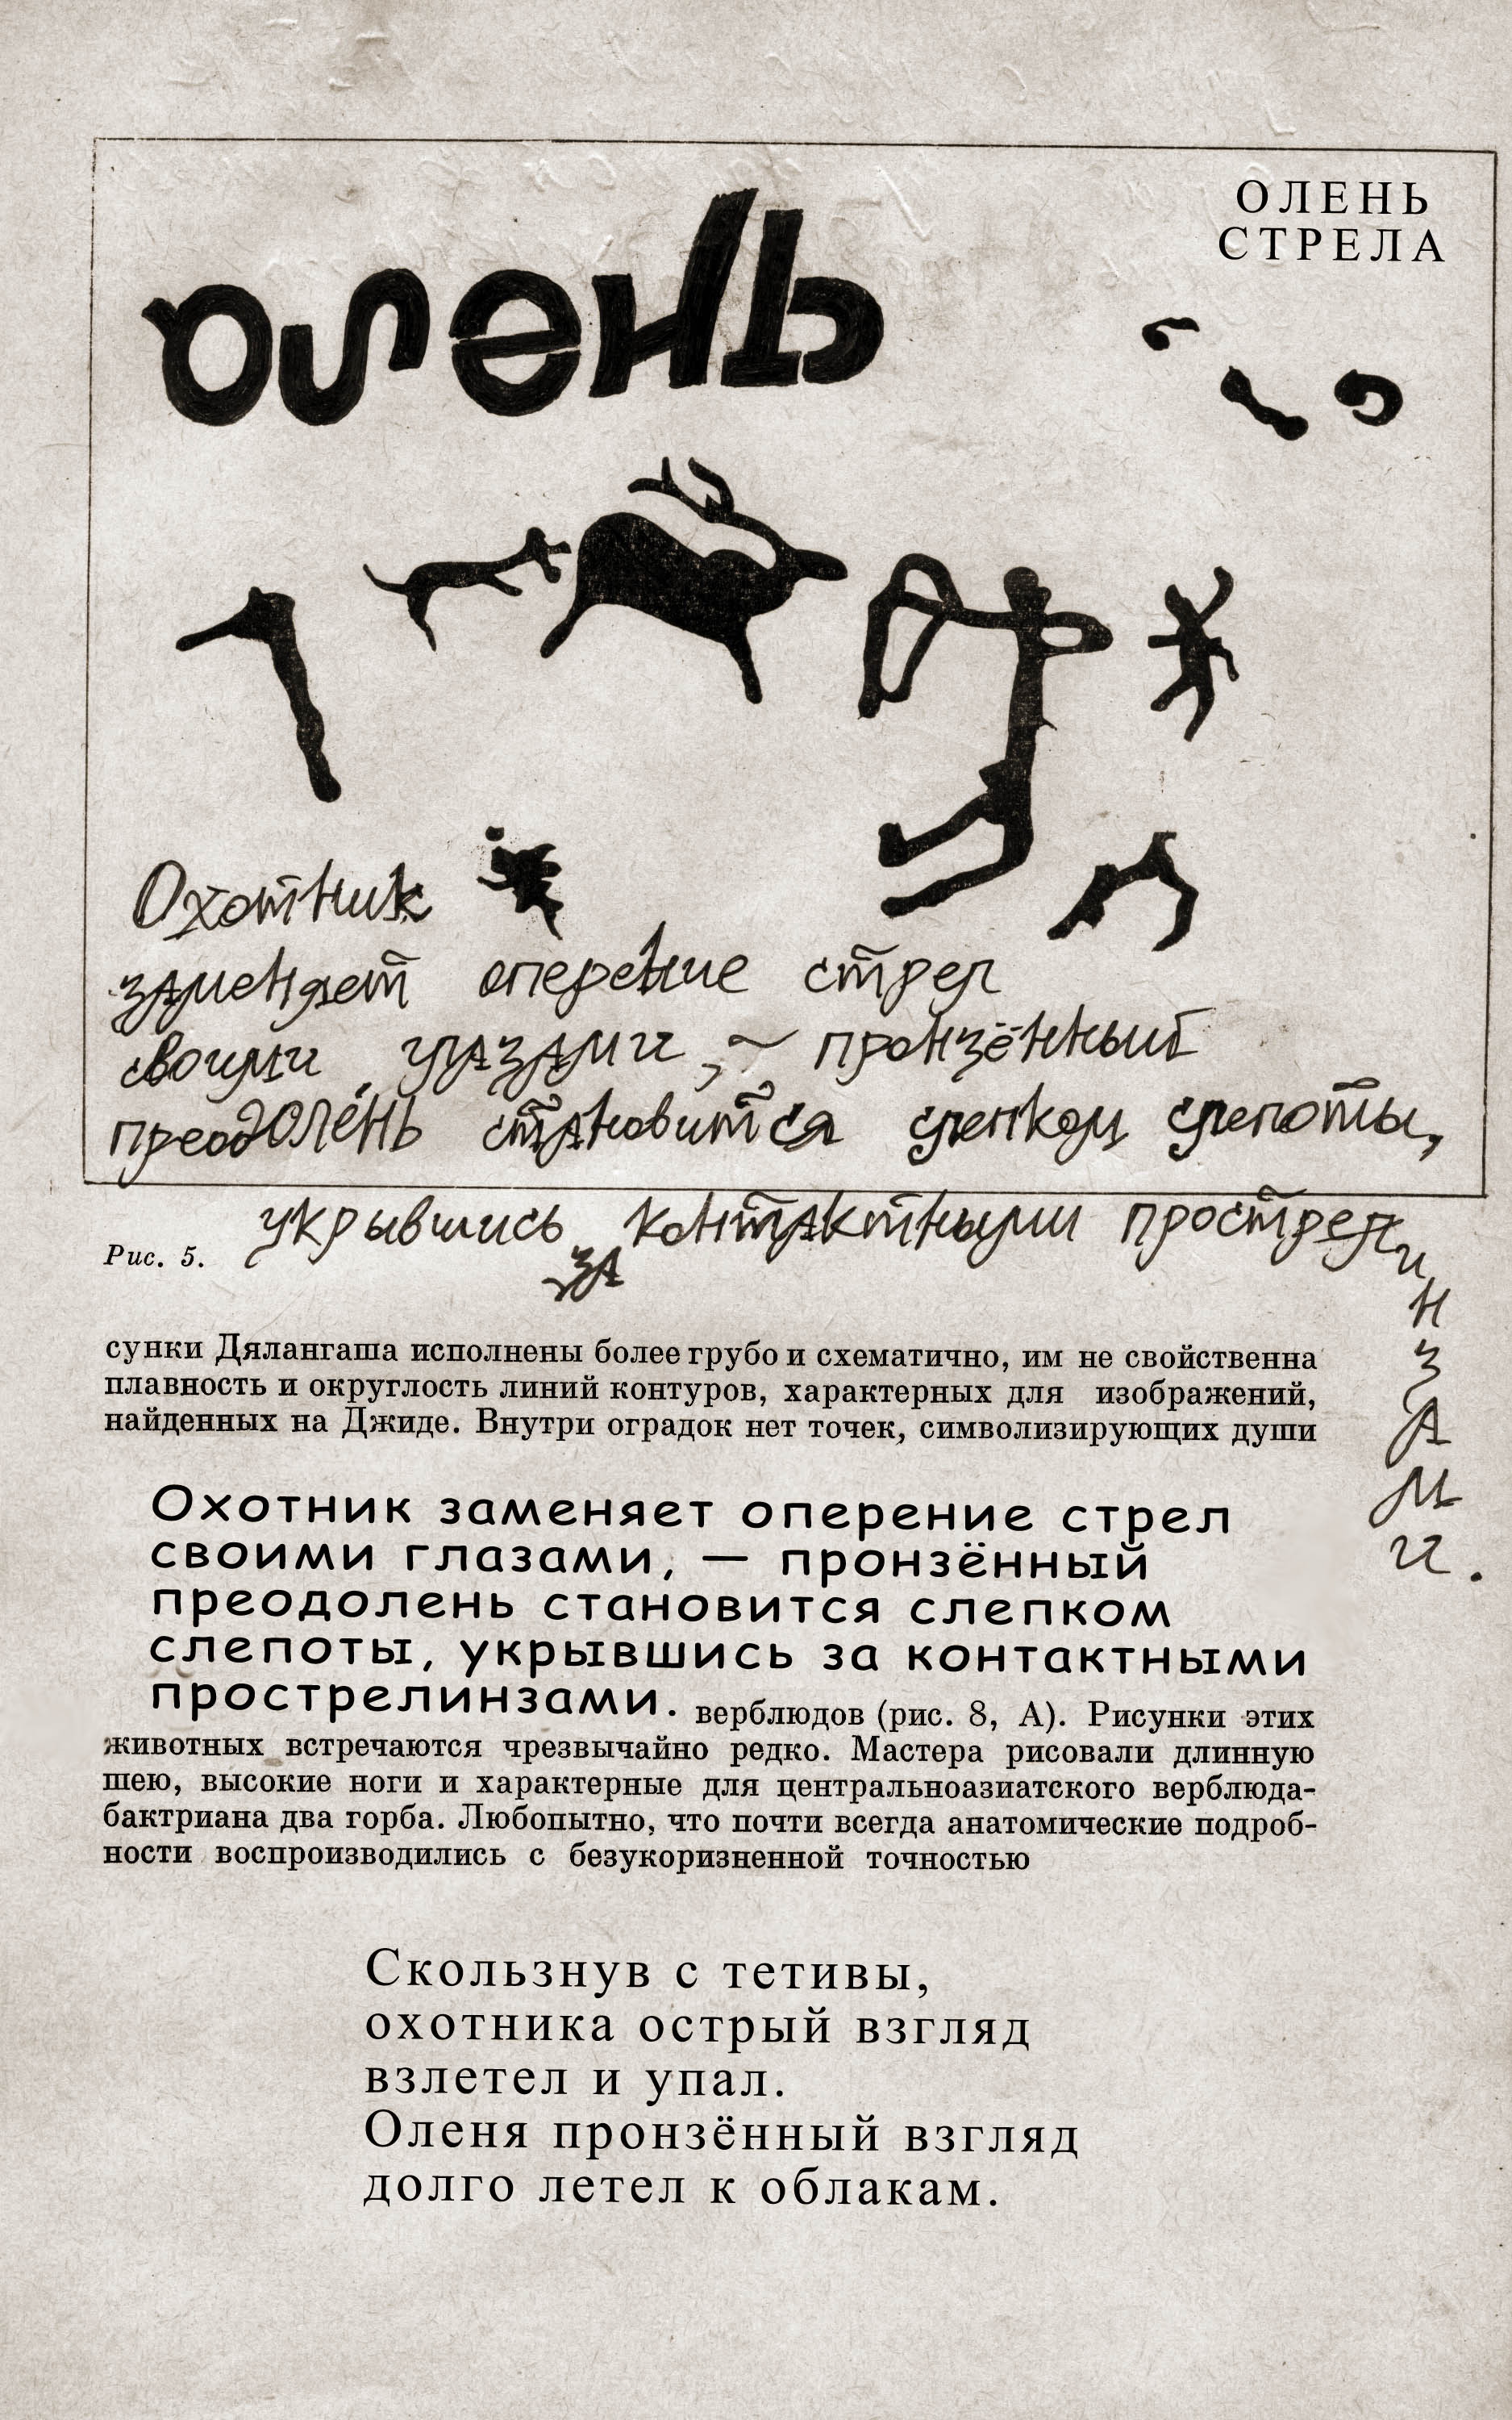 олень
ОЛЕНЬ
СТРЕЛА
Охотник
заменяет оперение стрел
своими глазами, ~ пронзённый
преодолень становится слепком слепоты,
укрывшись за контактными прострелинзами.
Рис. 5.
сунки Дялангаша исполнены более грубо и схематично, им не свойственна
плавность и округлость линий контуров, характерных для изображений,
найденных на Джиде. Внутри оградок нет точек, символизирующих души
Охотник заменяет оперение стрел
своими глазами, — пронзённый
преодолень становится слепком
слепоты, укрывшись за контактными
прострелинзами. верблюдов (рис. 8, А). Рисунки этих
животных встречаются чрезвычайно редко. Мастера рисовали длинную
шею, высокие ноги и характерные для центральноазиатского верблюда-
бактриана два горба. Любопытно, что почти всегда анатомические подроб-
ности воспроизводились с безукоризненной точностью
Скользнув с тетивы,
охотника острый взгляд
взлетел и упал.
Оленя пронзённый взгляд
долго летел к облакам.